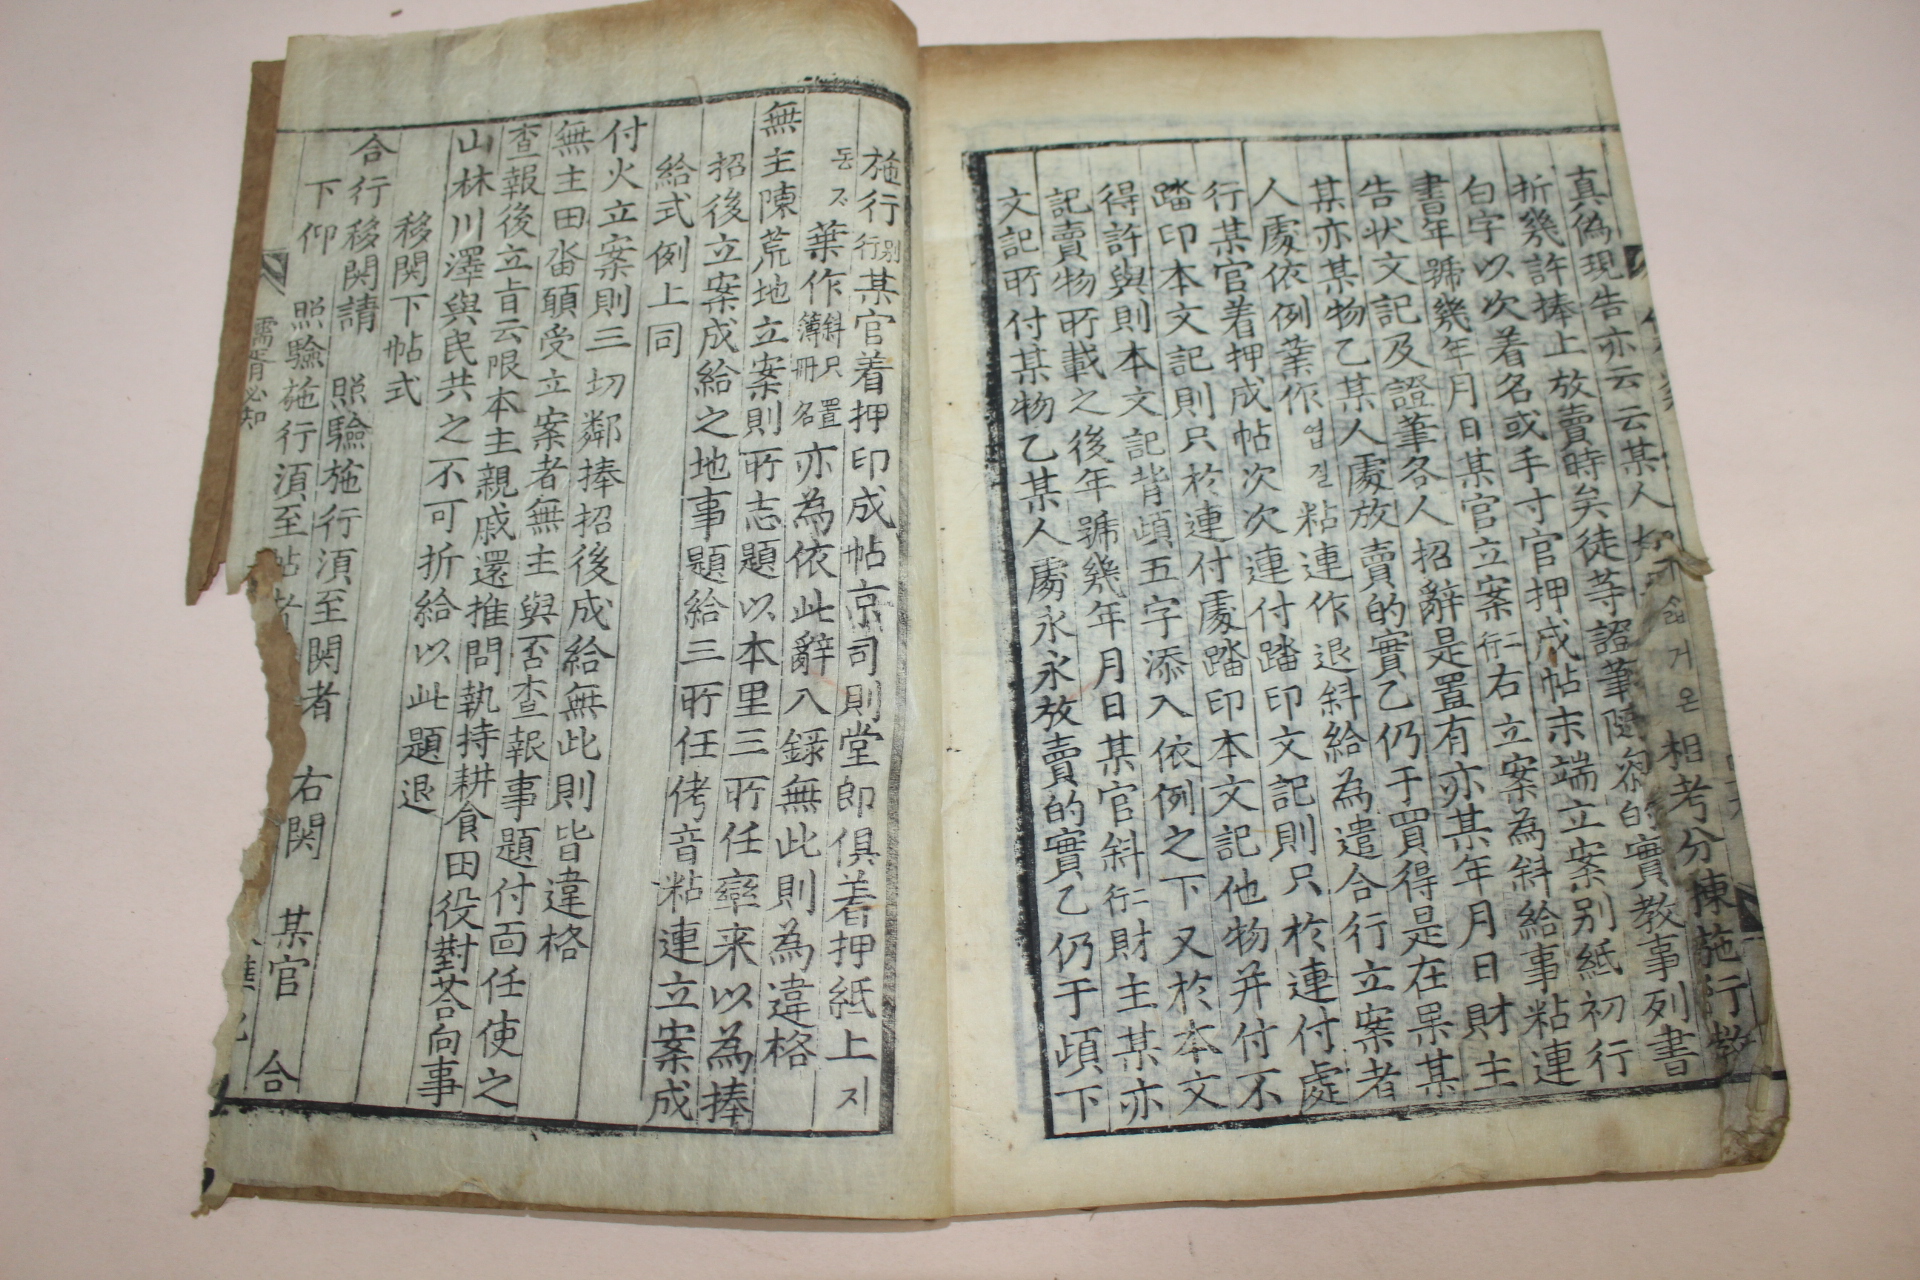 相考分揀施行教
真偽現告亦云云某人 的實教事列書
折幾許捧上放賣時矣徒等證筆隨參 立案別紙初行
白字以次着名或手寸官押成帖末端 為斜給事粘連
書年號幾年月日某官立案 二行 右立案 財主
告状文記及證筆各人招辭是置有亦某年月日 某
某亦某物乙某人處放賣的實乙仍于買得是在果 者
人處依例葉作 엽질 粘連作退斜給為遣合行立案 處
行某官着押成帖次次連付踏印文記則只於連付 不
踏印本文記則只於連付處踏印本文記他物并付 文
得許與則本文記背頉五字添入依例之下又於本 亦
記賣物所載之後年號幾年月日某官斜 二行 財主某
文記所付某物乙某人處永永放賣的實乙仍于頉下
施行 別行 某官着押印成帖京司則堂郎俱着押紙上 지
동지 葉作 斜只置簿冊名 亦為依此辭入録無此則為違格
無主陳荒地立案則所志題以本里三所任率来以為捧
招後立案成給之地事題給三所任侤音粘連立案成
給式例上同
付火立案則三切鄰捧招後成給無此則皆違格
無主田畓願受立案者無主與否查報事題付面任使之
查報後立旨云限本主親戚還推間執持耕食田役對答向事
山林川澤與民共之不可折給以此題退
移関下帖式
合行移関請 照驗施行湏至関者 右関 某官 合
下仰 照驗施行湏至帖者
儒胥必知